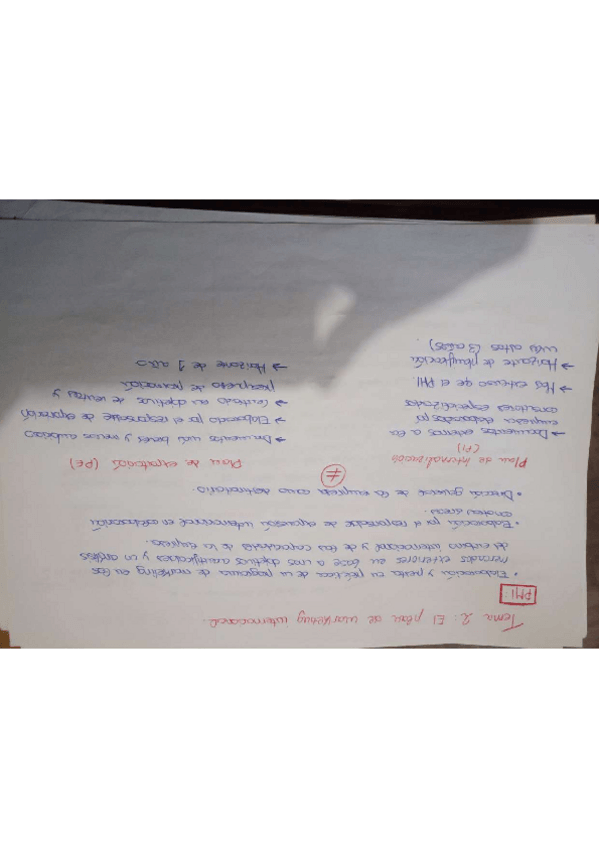 Tema 2: El plan de marketing internacional.
PMI:
• Elaboración y puesta en práctica de un programa de marketing en los
mercados exteriores en base a unos objetivos cuantificados y un análisis
del entorno internacional y de las capacidades de la empresa.
• Elaboración por el responsable de expansión internacional en colaboración
con otras áreas.
• Dirección general de la empresa como destinatario.
≠
Plan de Internalización
(PI)
→ Documentos externos a la
empresa elaborados por
consultores especializados
→ Más extenso que el PMI
→ Horizonte de planificación
varios años (3 años).
Plan de exportación (PE)
→ Documento más breve y menos ambicioso
→ Elaborado por el responsable de exportación
→ Centrado en objetivos de ventas y
presupuesto de promoción
→ Horizonte de 1 año